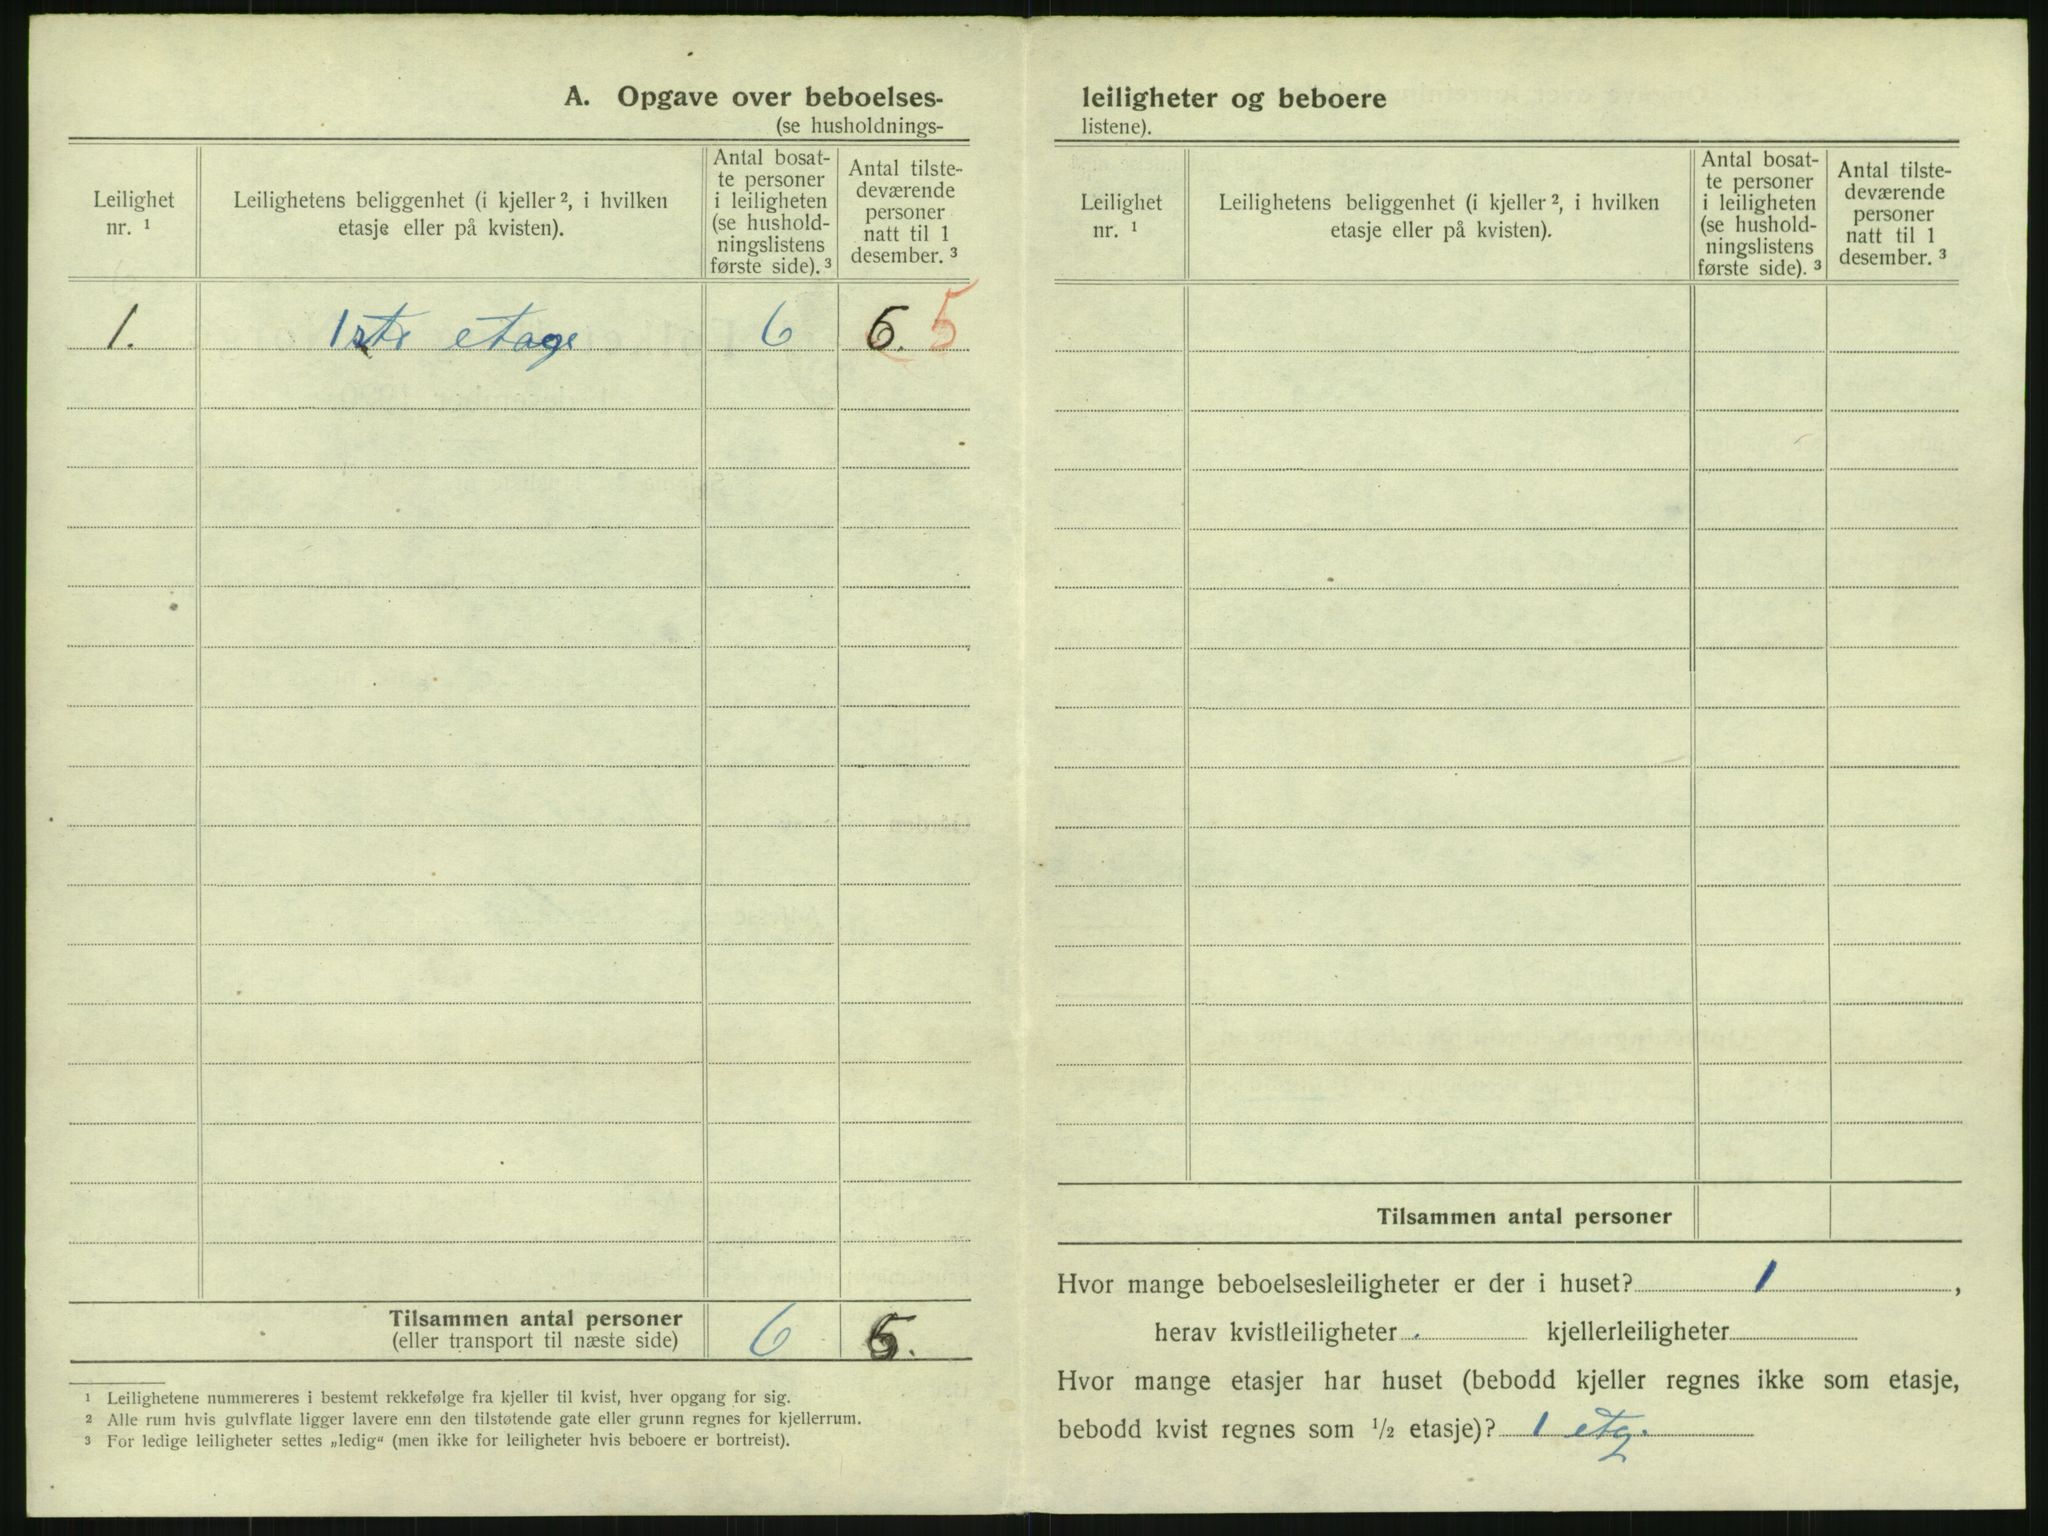 A. Opgave over beboelses-
(se husholdnings-
Leilighet nr. ¹
Leilighetens beliggenhet (i kjeller ², i hvilken etasje eller på kvisten).
Antal bosat-
te personer
i leiligheten
(se hushold-
ningslistens
første side). ³
Antal tilste-
deværende
personer
natt til 1
desember. ³
1. 1ste etage 6 6. 5
Tilsammen antal personer 6 6.
(eller transport til næste side)
¹ Leilighetene nummereres i bestemt rekkefølge fra kjeller til kvist, hver opgang for sig.
² Alle rum hvis gulvflate ligger lavere enn den tilstøtende gate eller grunn regnes for kjellerrum.
³ For ledige leiligheter settes „ledig“ (men ikke for leiligheter hvis beboere er bortreist).
leiligheter og beboere
listene).
Leilighet nr. ¹
Leilighetens beliggenhet (i kjeller ², i hvilken etasje eller på kvisten).
Antal bosat-
te personer
i leiligheten
(se hushold-
ningslistens
første side). ³
Antal tilste-
deværende
personer
natt til 1
desember. ³
Tilsammen antal personer
Hvor mange beboelsesleiligheter er der i huset? 1 ,
herav kvistleiligheter kjellerleiligheter
Hvor mange etasjer har huset (bebodd kjeller regnes ikke som etasje,
bebodd kvist regnes som ½ etasje)? 1 etg.